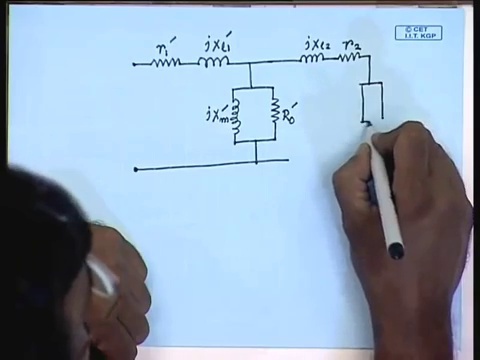 © CET
I.I.T. KGP
r₁′ jxℓ₁′ jxℓ₂ r₂
jx′m R₀′